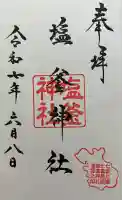 奉拝
塩釜神社
塩釜
神社
令和七年六月八日